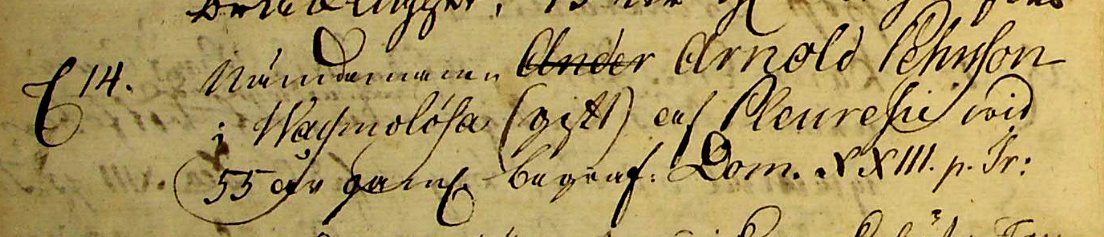 14. Nämdemannen Ander Arnold Pehrsson
i Wachmolösa (gift) af Pleuresie wid
55 år gaml. begraf: Dom. XXIII. p. Tr: